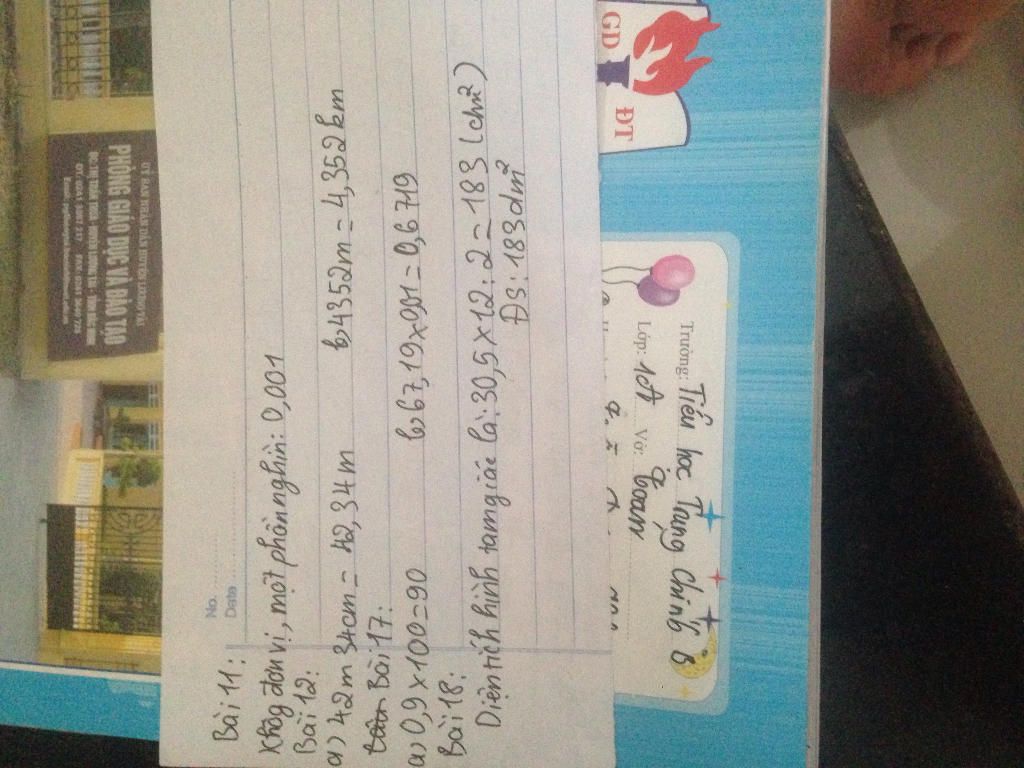 No.
Date
Bài 11:
Không đơn vị, một phần nghìn: 0,001
Bài 12:
a) 42m 34cm = 42,34m b) 4352m = 4,352km
Bài 17:
a) 0,9 × 100 = 90 b) 67,19 × 0,01 = 0,6719
Bài 18:
Diện tích hình tam giác là: 30,5 × 12 : 2 = 183 (dm²)
Đs: 183dm²
GD ĐT
Trường: Tiểu học Trung Chính
Lớp: 1A Vở:
PHÒNG GIÁO DỤC VÀ ĐÀO TẠO